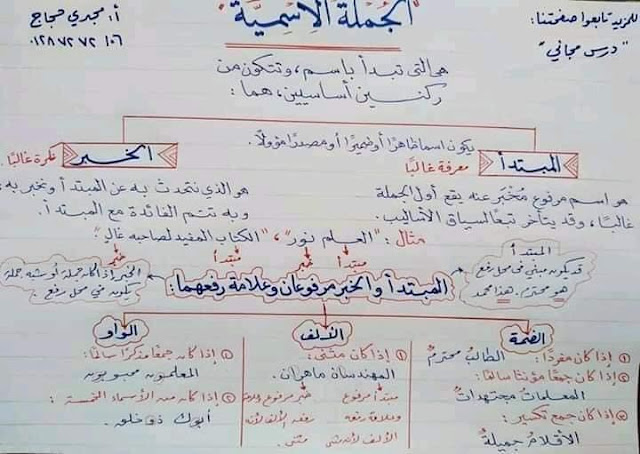 للمزيد تابعوا صفحتنا:
"درس مجاني"
الجُملة الاِسْمِيَّة
أ. مجدي حجاج
هي التي تبدأ باسم، وتتكون من
ركنين أساسيين، هما:
يكون اسمًا ظاهرًا أو ضميرًا أو مصدرًا مؤولًا.
المبتدأ
معرفة غالبًا
هو اسم مرفوع مُخْبَر عنه يقع أول الجملة
غالبًا، وقد يتأخر تبعًا لسياق الأساليب.
الخبر
نكرة غالبًا.
هو الذي نتحدث به عن المبتدأ ونخبر به،
وبه تتم الفائدة مع المبتدأ.
مثال: "العلم نورٌ"، "الكتاب المفيد لصاحبه غالٍ"
مبتدأ خبر مبتدأ خبر
المبتدأ
قد يكون مبني في محل رفع
هو محترم. هذا محمد
المبتدأ والخبر مرفوعان وعلامة رفعهما:
الخبر إذا كان جملة أو شبه جملة
يكون في محل رفع.
الضمة
① إذا كان مفردًا: الطالبُ محترمٌ
② إذا كان جمعًا مؤنثًا سالمًا:
المعلماتُ مجتهداتٌ
③ إذا كان جمع تكسير:
الأقلامُ جميلةٌ
الألف
① إذا كان مثنى:
المهندسان ماهران.
مبتدأ مرفوع خبر مرفوع وعلامة
وعلامة رفعه رفعه الألف لأنه
الألف لأنه مثنى مثنى.
الواو
① إذا كان جمعًا مذكرًا سالمًا:
المعلمون محبوبون
② إذا كان من الأسماء الخمسة:
أبوك ذو خلق.